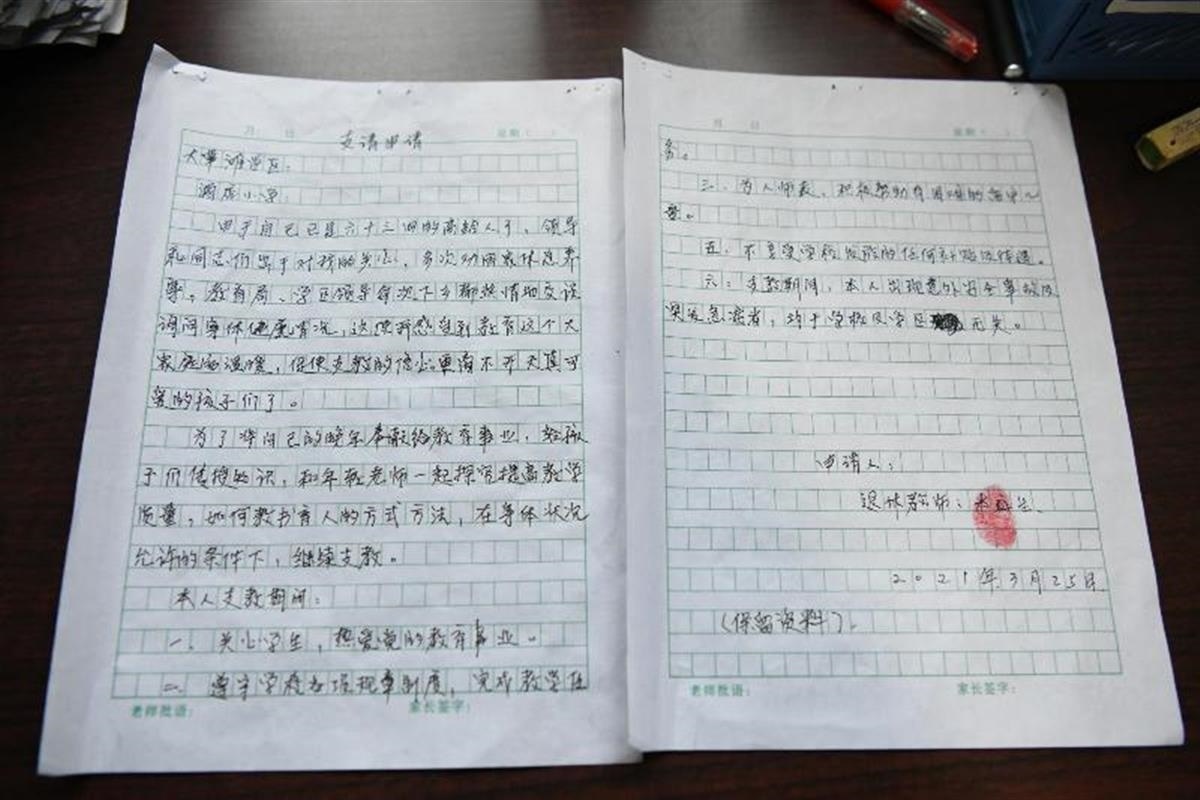 月 日 星期（ ）
支请申请
大草滩学区：
酒店小学：
由于自己已是六十三四的高龄人了，领导
和同志们出于对我的关心，多次劝回家休息养
导。教育局、学区领导每次下乡都热情地交谈
询问身体健康情况，这使我感受到教育这个大
家庭的温暖，促使支教的信心更离不开天真可
爱的孩子们了。
为了将自己的晚年奉献给教育事业，给孩
子们传授知识，和年轻老师一起探究提高教学
质量，如何教书育人的方式方法，在身体状况
允许的条件下，继续支教。
本人支教期间：
一、关心学生，热爱党的教育事业。
二、遵守学校各项规章制度，完成教学任
老师批语： 家长签字：
月 日 星期（ ）
务。
三、为人师表，积极帮助有困难的
五、不享受学校发放的任何补贴及待遇。
六、支教期间，本人出现意外安全事故及
突发急病者，均于学校及学区无关。
申请人：
退休教师：
2021年3月25日
（保留资料）。
老师批语： 家长签字：